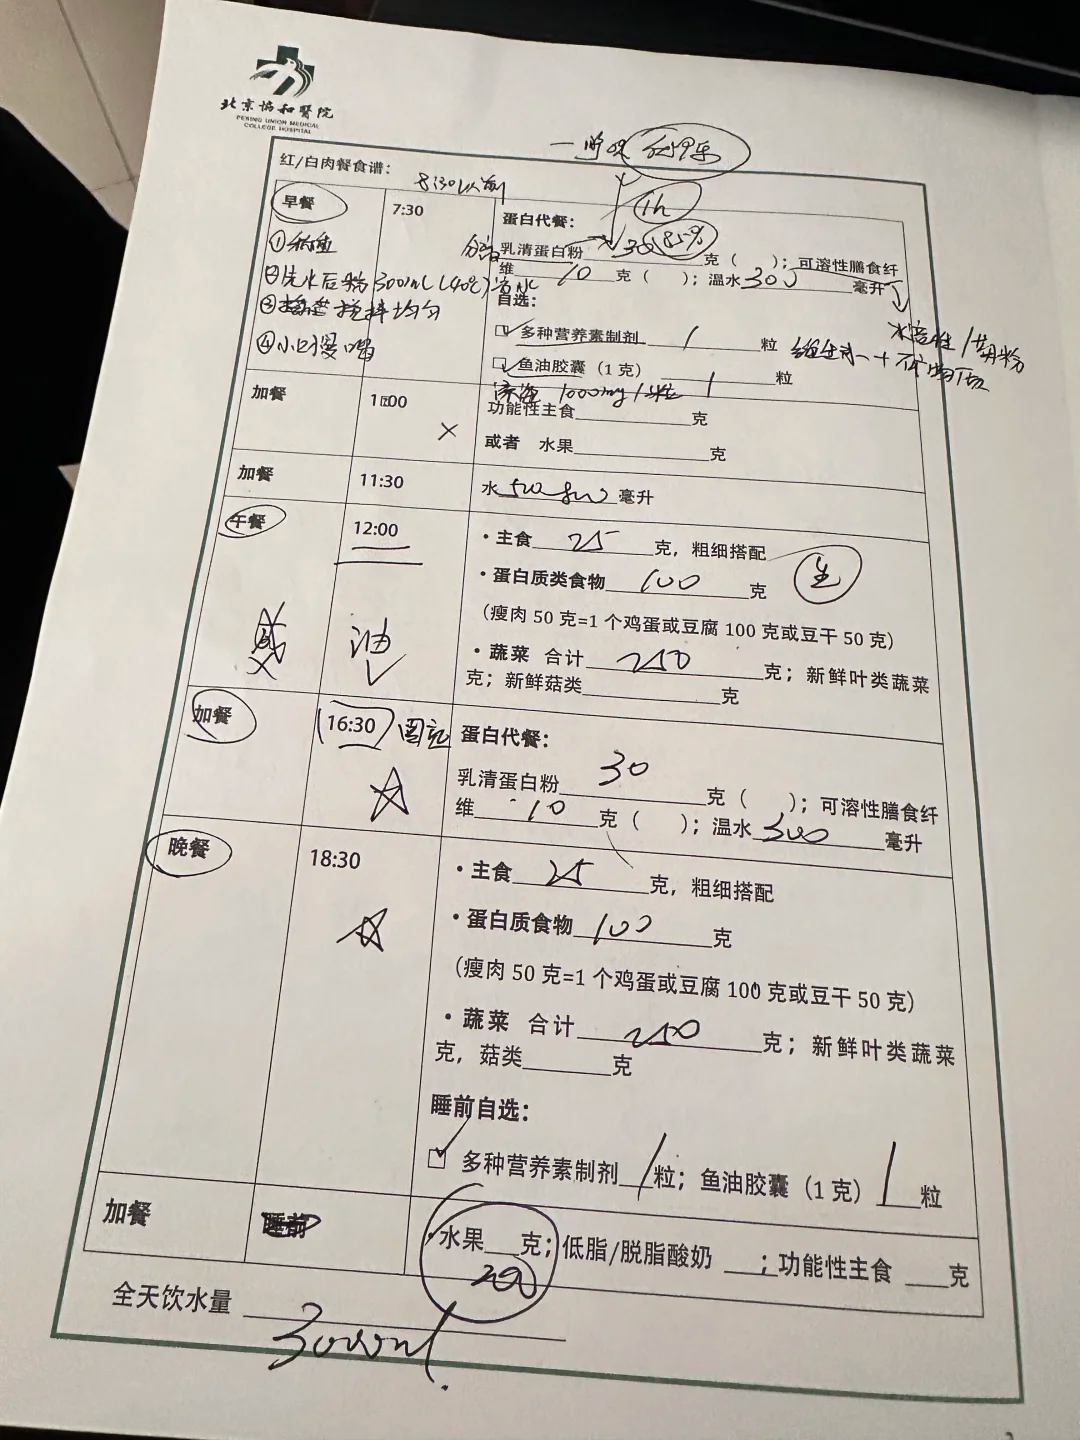 北京協和醫院
PEKING UNION MEDICAL
COLLEGE HOSPITAL
红/白肉餐食谱：
8:30以前
1h
早餐
7:30
蛋白代餐：
乳清蛋白粉 30 85% 克（ ）；可溶性膳食纤
维 10 克（ ）；温水 300 毫升
② 先水后粉 300ml（40℃）温水
③ 搅拌均匀
④ 小口慢喝
自选：
多种营养素制剂 1 粒
鱼油胶囊（1克） 1 粒
1000mg/1粒
加餐
功能性主食 克
或者 水果 克
加餐
11:30
水 500-800 毫升
午餐
12:00
·主食 25 克，粗细搭配
·蛋白质类食物 100 克
生
（瘦肉 50 克=1 个鸡蛋或豆腐 100 克或豆干 50 克）
油
·蔬菜 合计 250 克；新鲜叶类蔬菜
克；新鲜菇类 克
加餐
16:30
蛋白代餐：
乳清蛋白粉 30 克（ ）；可溶性膳食纤
维 10 克（ ）；温水 300 毫升
晚餐
18:30
·主食 25 克，粗细搭配
·蛋白质食物 100 克
（瘦肉 50 克=1 个鸡蛋或豆腐 100 克或豆干 50 克）
·蔬菜 合计 250 克；新鲜叶类蔬菜
克，菇类 克
睡前自选：
多种营养素制剂 1 粒；鱼油胶囊（1克） 1 粒
加餐
睡前
水果 200 克；低脂/脱脂酸奶 ；功能性主食 克
全天饮水量 3000ml